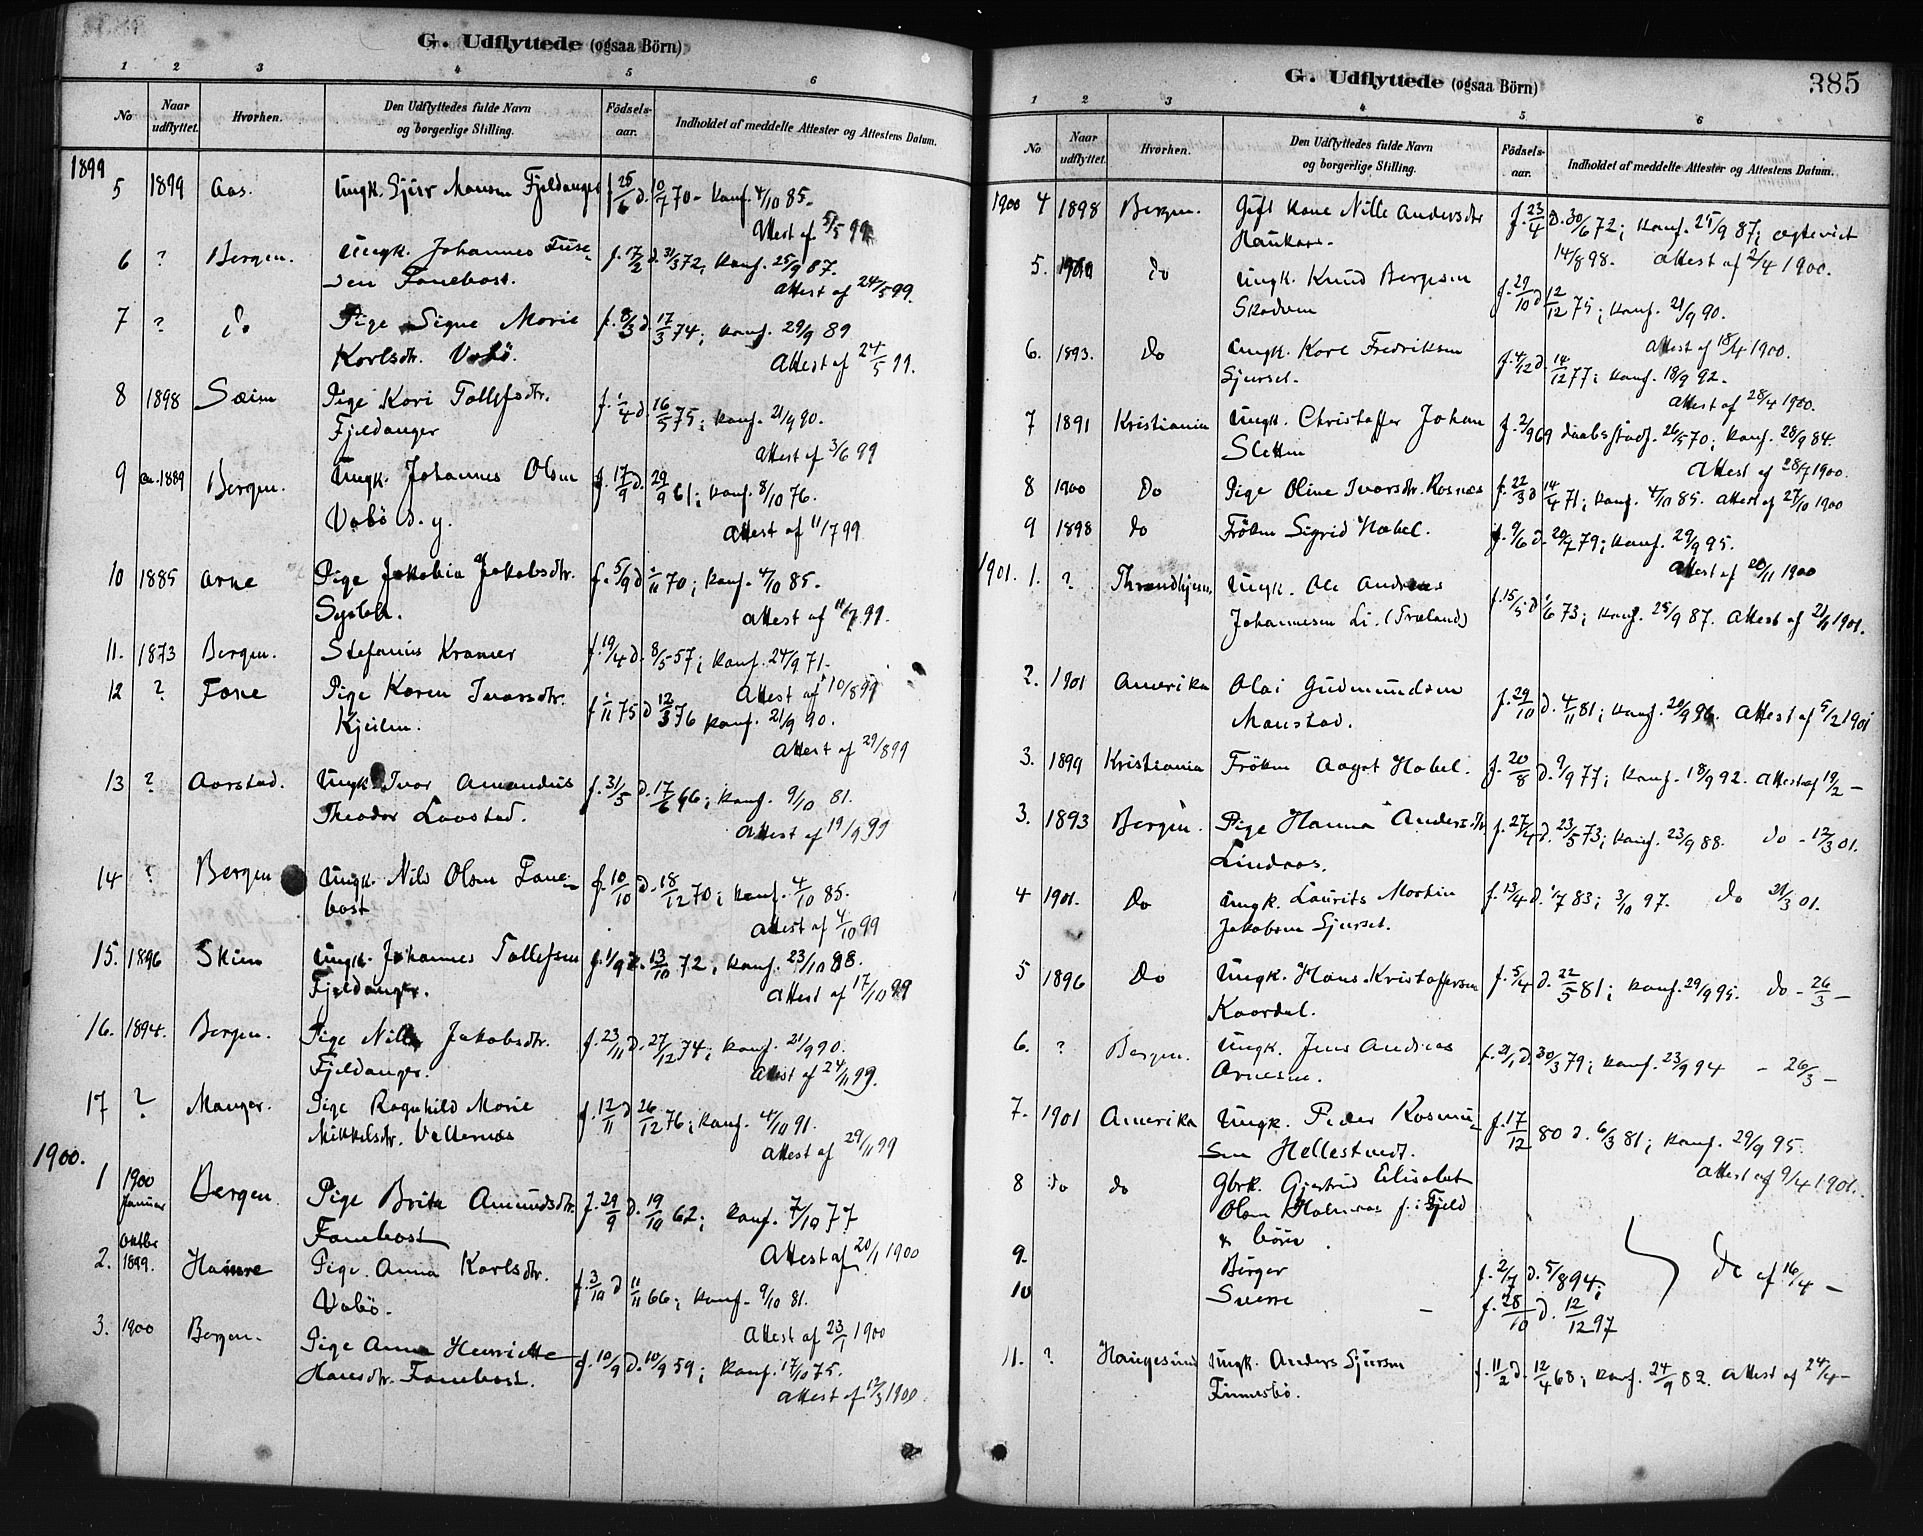 G. Udflyttede (ogsaa Börn)
1 2 3 4 5 6
No
Naar udflyttet.
Hvorhen.
Den Udflyttedes fulde Navn og borgerlige Stilling.
Födsels-aar.
Indholdet af meddelte Attester og Attestens Datum.
1899
5 1899 Aas. Ungk. Sjur Monsen Fjeldanger f. 25/6 d. 10/7 70 - Konf. 4/10 85.
Attest af 5/5 99
6 ? Bergen. Ungk. Johannes f. 17/2 d. 31/3 72; Konf. 25/9 87.
sen Fanebost. Attest af 24/5 99.
7 ? do Pige Signe Marie f. 8/3 d. 17/3 74; Konf. 29/9 89
Karlsdtr. Vabö. Attest af 24/5 99.
8 1898 Sæim Pige Kari Tollefsdtr. f. 1/4 d. 16/5 75; Konf. 21/9 90.
Fjeldanger Attest af 3/6 99
9 ca. 1889 Bergen. Ungk. Johannes Olsen f. 17/9 d. 29/9 61; Konf. 8/10 76.
Vabö d. y. Attest af 11/7 99
10 1885 Arne Pige Jakobia Jakobsdtr. f. 5/9 d. 1/11 70; Konf. 4/10 85.
Attest af 11/7 99.
11. 1873 Bergen. Stefanus Kramer f. 19/4 d. 8/5 57; Konf. 24/9 71.
Attest af 10/8 99
12 ? Fane Pige Karen Ivarsdtr. f. 1/11 75 d. 12/3 76 Konf. 21/9 90.
Kjeilen. Attest af 29/8 99
13 ? Aarstad. Ungk. Ivar Amandus f. 31/5 d. 17/6 66; Konf. 9/10 81.
Theodor Lavstad. Attest af 19/9 99
14 ? Bergen Ungk. Nils Olsen Fane- f. 10/10 d. 18/12 70; Konf. 4/10 85.
bost Attest af 4/10 99
15. 1896 Skien Ungk. Johannes Tollefsen f. 1/9 d. 13/10 72; Konf. 23/10 88.
Fjeldanger. Attest af 17/10 99
16. 1894. Bergen. Pige Nille Jakobsdtr. f. 23/11 d. 27/12 74; Konf. 21/9 90.
Fjeldanger. Attest af 24/11 99.
17 ? Manger. Pige Ragnhild Marie f. 12/11 d. 26/12 76; Konf. 4/10 91.
Mikkelsdtr. Vellernæs Attest af 29/11 99
1900.
1 1900 Januar Bergen. Pige Brita Amundsdtr. f. 29/9 d. 19/10 62; Konf. 7/10 77
Fanebost Attest af 20/1 1900
2. Oktbr 1899. Hamre Pige Anna Karlsdtr. f. 3/10 d. 11/11 66; Konf. 9/10 81.
Vabö. Attest af 23/1 1900
3. 1900 Bergen. Pige Anna Henriette f. 10/9 d. 10/9 59; Konf. 17/10 75.
Hansdtr. Fanebost. Attest af 12/3 1900.
G. Udflyttede (ogsaa Börn)
385
1 2 3 4 5 6
No
Naar udflyttet.
Hvorhen.
Den Udflyttedes fulde Navn og borgerlige Stilling.
Födsels-aar.
Indholdet af meddelte Attester og Attestens Datum.
1900 4 1898 Bergen. Gift Kone Nille Andersdtr f. 23/4 d. 30/6 72; Konf. 25/9 87; ægteviet
Haukaas. 14/8 98. Attest af 2/4 1900.
5. 1900 do Ungk. Knud Bergesen f. 29/10 d. 12/12 75; Konf. 21/9 90.
Skodven Attest af 18/4 1900.
6. 1893. do Ungk. Karl Fredriksen f. 4/12 d. 14/12 77; Konf. 18/9 92.
Sjurset. Attest af 28/4 1900.
7 1891 Kristiania Ungk. Christoffer Johan f. 2/9 69 daabsstadf. 26/5 70; Konf. 28/9 84.
Sletten Attest af 28/7 1900.
8 1900 do Pige Oline Ivarsdtr. Rosnæs f. 22/3 d. 14/4 71; Konf. 4/10 85. Attest af 27/10 1900
9 1898 do Fröken Sigrid Habel. f. 9/6 d. 20/7 79; Konf. 29/9 95.
Attest af 20/11 1900
1901. 1. ? Throndhjem. Ungk. Ole Andreas f. 15/5 d. 1/6 73; Konf. 25/9 87. Attest af 21/1 1901.
Johannesen Li. (Træland)
2. 1901 Amerika Olai Gudmundsen f. 29/10 d. 4/11 81; Konf. 20/9 96. Attest af 5/2 1901
Monstad.
3. 1899 Kristiania Fröken Aagot Habel. f. 20/8 d. 9/9 77; Konf. 18/9 92. Attest af 19/2 -
3. 1893 Bergen. Pige Hanna Andersdtr f. 27/4 d. 23/5 73; Konf. 23/9 88. do - 12/3 01.
Lindaas.
4 1901. do Ungk. Laurits Martin f. 13/4 d. 1/7 83; 3/10 97. do 21/3 01.
Jakobsen Sjurset.
5 1896 do Ungk. Hans Kristoffersen f. 5/4 d. 22/5 81; Konf. 29/9 95. do - 26/3 -
Kaardal.
6. ? Bergen. Ungk. Jens Andreas f. 21/1 d. 30/3 79; Konf. 23/9 94 - 26/3 -
Arnesen.
7. 1901 Amerika Ungk. Peder Rasmu- f. 17/12 80 d. 6/3 81; Konf. 29/9 95.
sen Hellestvedt. Attest af 9/4 1901.
8 do do Gbrk. Gjertrud Elisabet
Olsen Holmaas f. i Fjeld
& börn.
9. Birger f. 2/7 d. 5/8 94; do af 16/4 -
10 Sverre - f. 28/10 d. 12/12 97
11. ? Haugesund Ungk. Anders Sjursen f. 11/2 d. 12/4 68; Konf. 24/9 82. Attest af 24/4 -
Finnesbö.